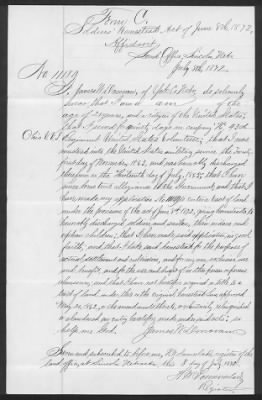 Form C.
Soldiers Homestead Act of June 8th 1872.
Affidavit
Land Office, Lincoln Nebr
July 8th 1872.
No 11189
I, James W. Donovan, of do solemnly
swear that I am of the
age of years, and a citizen of the United States;
that I served ninety days in company K 43rd
Ohio Regiment United States Volunteers; that I was
mustered into the United States military service the
first day of November 1862, and was honorably discharged
therefrom on the thirteenth day of July, 1865; that I have
since borne true allegiance to the Government; and that I
have made my application No 11189 to enter a tract of land
under the provisions of the act of June 8th 1872, giving homesteads to
honorably discharged soldiers and sailors, their widows and
orphan children; that I have made said application in good
faith; and that I take said homestead for the purpose of
actual settlement and cultivation, and for my own exclusive use
and benefit, and for the use and benefit of no other person or persons
whomsoever; and that I have not heretofore acquired a title to a
tract of land under this or the original homestead law, approved
May 20, 1862, or the amendments thereto, or voluntarily relinquished
or abandoned an entry heretofore made under said acts: so
help me God. James W Donovan
Sworn and subscribed to before me, register of the
land office, at Lincoln Nebraska this 8 day of July 1872.
Register